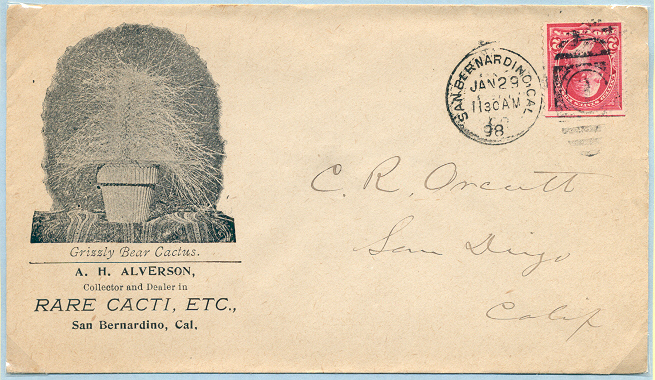 Grizzly Bear Cactus.
A. H. ALVERSON,
Collector and Dealer in
RARE CACTI, ETC.,
San Bernardino, Cal.
SAN BERNARDINO, CAL.
JAN 29
1130AM
98
C. R. Orcutt
San Diego
Calif